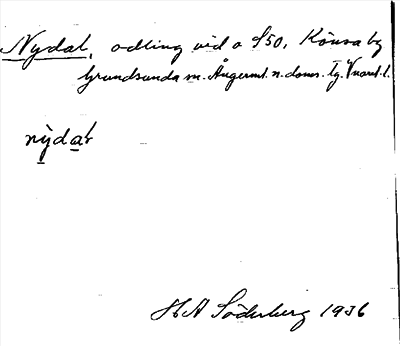 Nydal, odling vid o S50, Könsa by
Grundsunda sn. Ångerml. n. doms. tg. V norrl. l.
nydal
H A Söderberg 1936